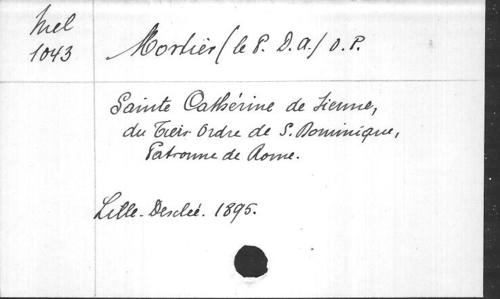 Mel
1043
Mortier (le P. D. A.) O. P.
Sainte Cathérine de Sienne,
du Tiers Ordre de S. Dominique,
Patronne de Rome.
Lille. Desclée. 1895.